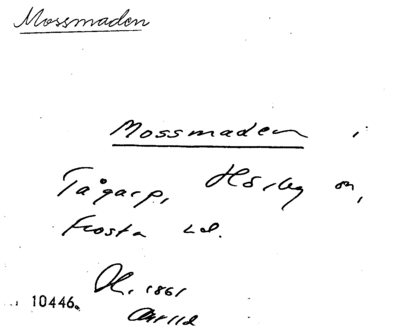 Mossmaden
Mossmaden i
Tågarp, Hörby sn,
Frosta hd.
1861
10446.